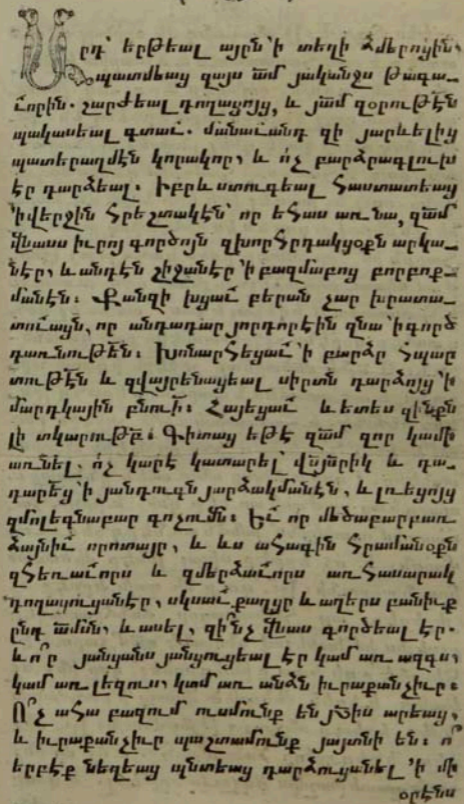 Արդ՝ երթեալ այրն ՚ի տեղի ձմերոցին,
պատմեաց զայս ամ յականջս թագա֊
ւորին. շարժեալ դողացոյց, և յամ զօրութէն
պակասեալ գտաւ. մանաւանդ զի յարևելից
պատերազմէն կորակոր, և ո՛չ բարձրագլուխ
էր դարձեալ. Իբրև ստուգեալ հաստատեաց
՚ի վերջին հրեշտակէն՝ որ եհաս առ նա, զամ
վնասս իւրոյ գործոյն զխորհրդակցօքն արկա֊
նէր, և անդէն չիջանէր ՚ի բազմաբոց բորբոք֊
մանէն: Քանզի խցաւ բերան չար խրատա֊
տուացն, որ անդադար յորդորէին զնա ՚ի գործ
դառնութեն: Խոնարհեցաւ ՚ի բարձր հպար
տութեն և զվայրենացեալ սիրտն դարձոյց ՚ի
մարդկային բնուի: Հայեցաւ և ետես զինքն
լի տկարութբ: Գիտաց եթէ զամ զոր կամի
առնել. ո՛չ կարէ կատարել՝ վայրիկ և դա֊
դարեց ՚ի յանդուգն յարձակմանէն, և լռեցոյց
զմոլեգնաբար գոչումն: Եւ որ մեծաբարբառ
ձայնիւ որոտայր, և ևս ահագին հրամանօքն
զհեռաւորս և զմերձաւորս առհասարակ
դողացուցանէր, սկսաւ քաղցր և աղերս բանիւք
ընդ ամն, և ասել, զի՞նչ վնաս գործեալ էր.
և ո՞ր յանցանս յանցուցեալ էր կամ առ ազգս,
կամ առ լեզուս, կամ առ անձն իւրաքանչիւր:
Ո՞չ ահա բազում ուսմունք են յաշխիս արեաց,
և իւրաքանչիւր պաշտամունք յայտնի են: ո՞
երբէք նեղեաց պնտեաց դարձուցանել ՚ի մի
օրէնս